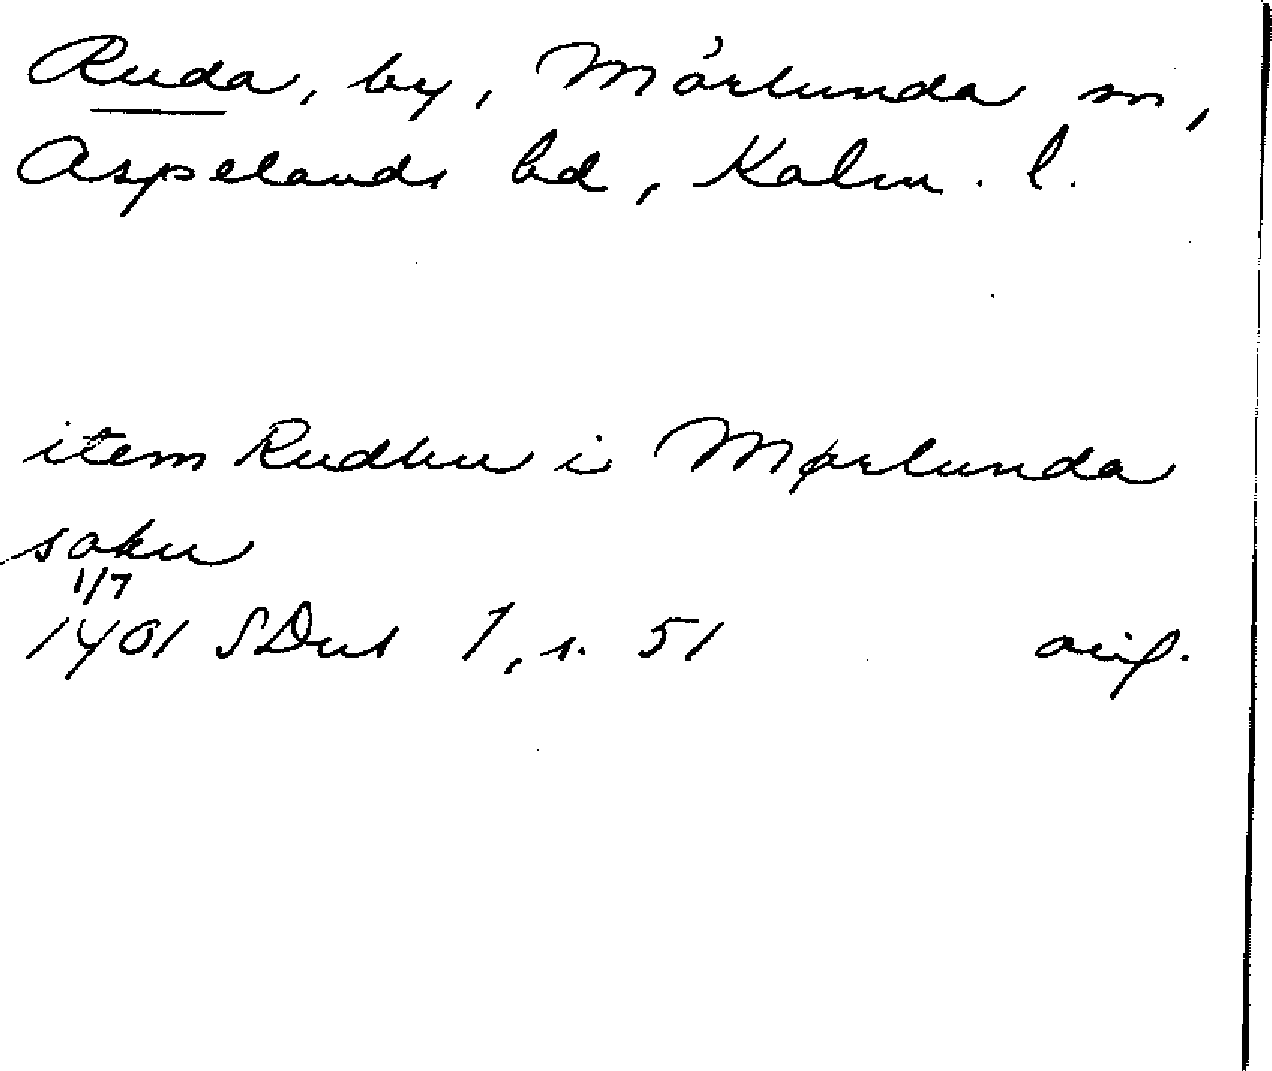 Ruda, by, Mörlunda sn,
Aspelands hd, Kalm. l.
item Rudhu i Mørlunda
sokn
1/7
1401 SDns 1, s. 51 avif.